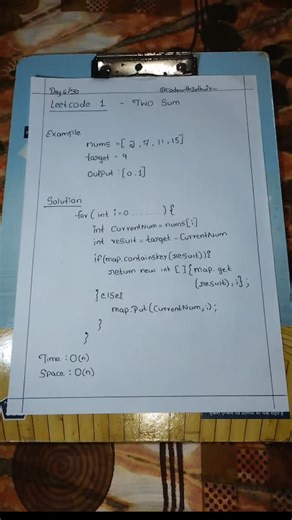 Day 6/30
Leetcode 1 - Two Sum
Example
nums = [2, 7, 11, 15]
target = 9
output : [0,1]
Solution
for (int i=0 ........) {
int CurrentNum = nums[i]
int result = target - CurrentNum
if(map.containskey(result)){
return new int [] {map.get
(result), i};
} else{
map.put(CurrentNum, i);
}
}
Time : O(n)
Space : O(n)